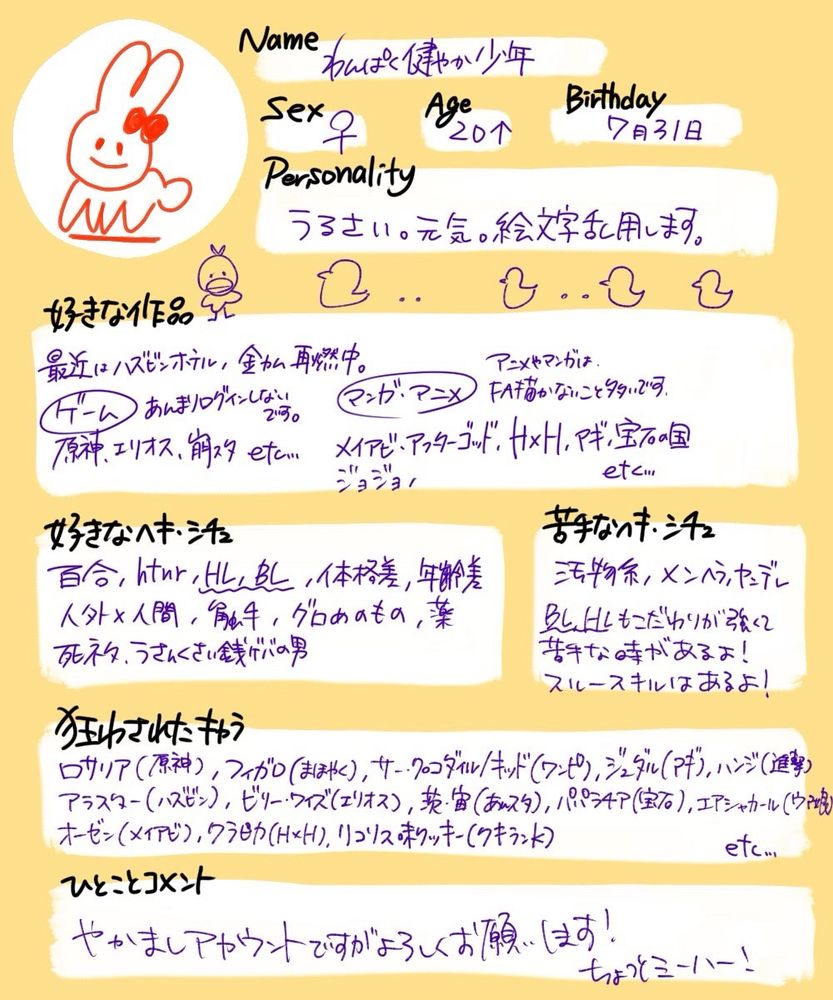 Name
わんぱく健やか少年
Sex
♀
Age
20↑
Birthday
7月31日
Personality
うるさい。元気。絵文字乱用します。
好きな作品
最近はハズビンホテル, 金カム再燃中。
ゲーム あんまりログインしない
です。
原神、エリオス、崩スタ etc...
マンガ・アニメ
アニメやマンガは、
FA描かないこと多いです。
メイアビ・アフターゴッド, H×H, マギ, 宝石の国
ジョジョ, etc...
好きなヘキ・シチュ
百合, htnr, HL, BL, 体格差, 年齢差
人外×人間, 触手, グロめのもの, 薬
死ネタ、うさんくさい銭ゲバの男
苦手なヘキ・シチュ
汚物系, メンヘラ, ヤンデレ
BL, HLもこだわりが強くて
苦手な時があるよ!
スルースキルはあるよ!
狂わされたキャラ
ロサリア(原神), フィガロ(まほやく), サー・クロコダイル/キッド(ワンピ), ジュダル(マギ), ハンジ(進撃)
アラスター(ハズビン), ビリー・ワイズ(エリオス), 茨・宙(あんスタ), パパラチア(宝石), エアシャカール(ウマ娘)
オーゼン(メイアビ), クラピカ(H×H), リコリス味クッキー(クキラン)
etc...
ひとことコメント
やかましアカウントですがよろしくお願いします!
ちょっとミーハー!